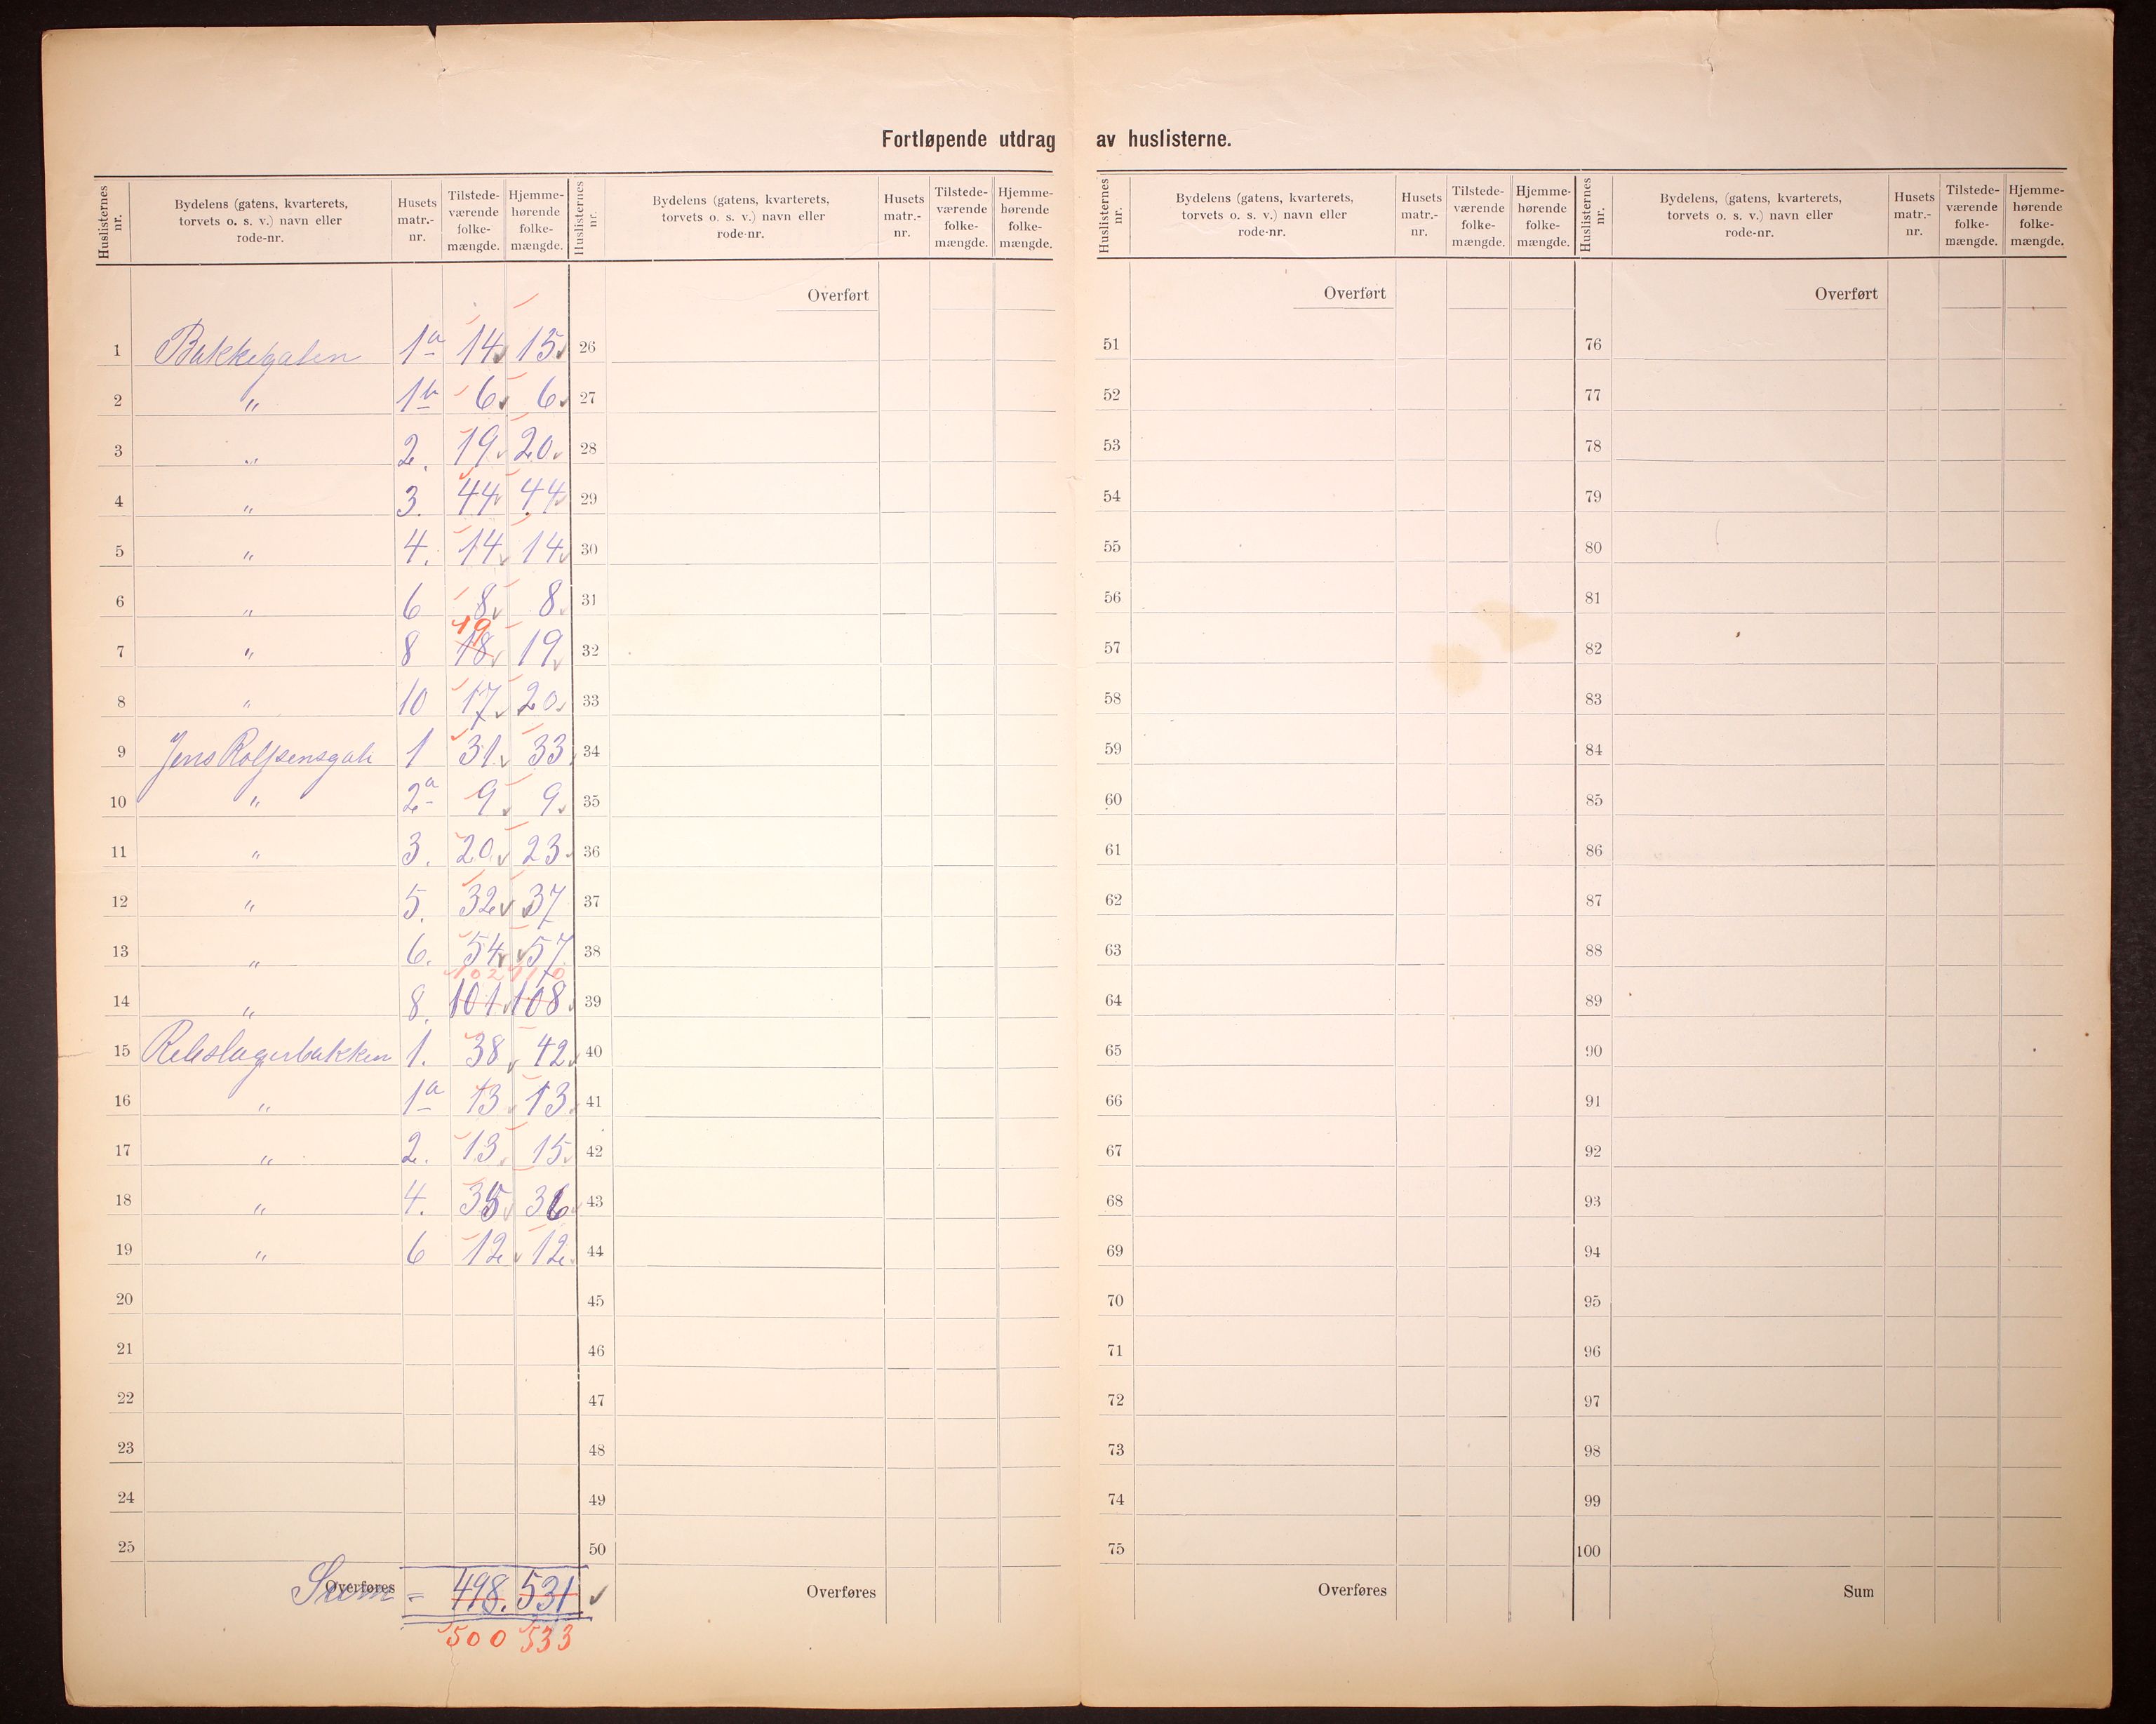 Fortløpende utdrag av huslisterne.
Huslisternes nr. | Bydelens (gatens, kvarterets, torvets o. s. v.) navn eller rode-nr. | Husets matr.-nr. | Tilstede-værende folke-mængde. | Hjemme-hørende folke-mængde.
Huslisternes nr. | Bydelens (gatens, kvarterets, torvets o. s. v.) navn eller rode-nr. | Husets matr.-nr. | Tilstede-værende folke-mængde. | Hjemme-hørende folke-mængde.
Huslisternes nr. | Bydelens (gatens, kvarterets, torvets o. s. v.) navn eller rode-nr. | Husets matr.-nr. | Tilstede-værende folke-mængde. | Hjemme-hørende folke-mængde.
Huslisternes nr. | Bydelens, (gatens, kvarterets, torvets o. s. v.) navn eller rode-nr. | Husets matr.-nr. | Tilstede-værende folke-mængde. | Hjemme-hørende folke-mængde.
Overført Overført Overført
1 Bakkegaten 1a 14 15 26 51 76
2 " 1b 6 6 27 52 77
3 " 2. 19 20 28 53 78
4 " 3. 44 44 29 54 79
5 " 4. 14 14 30 55 80
6 " 6 8 8 31 56 81
19
7 " 8 18 19 32 57 82
8 " 10 17 20 33 58 83
9 Jens Rolfsensgate 1 31 33 34 59 84
10 " 2a 9 9 35 60 85
11 " 3. 20 23 36 61 86
12 " 5. 32 37 37 62 87
13 " 6. 54 57 38 63 88
102 110
14 " 8. 101 108 39 64 89
15 Rebslagerbakken 1. 38 42 40 65 90
16 " 1a 13 13 41 66 91
17 " 2. 13 15 42 67 92
18 " 4. 35 36 43 68 93
19 " 6 12 12 44 69 94
20 45 70 95
21 46 71 96
22 47 72 97
23 48 73 98
24 49 74 99
25 50 75 100
Overføres Sum = 498. 531 Overføres Overføres Sum
500 533